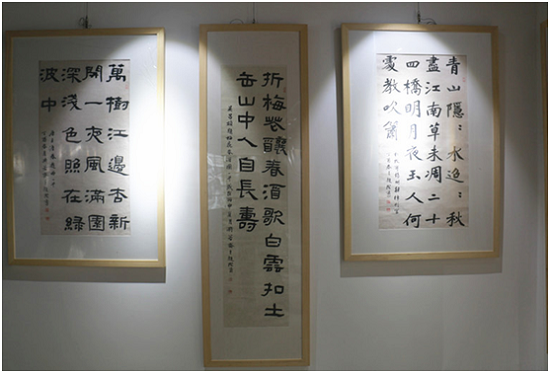 萬樹江邊杏新
開一夜風滿園
深淺色照在綠
波中
折梅花釀春酒歌白雲扣土
缶山中人自長壽
青山隱〻水迢〻秋
盡江南草未凋二十
四橋明月夜玉人何
處教吹簫